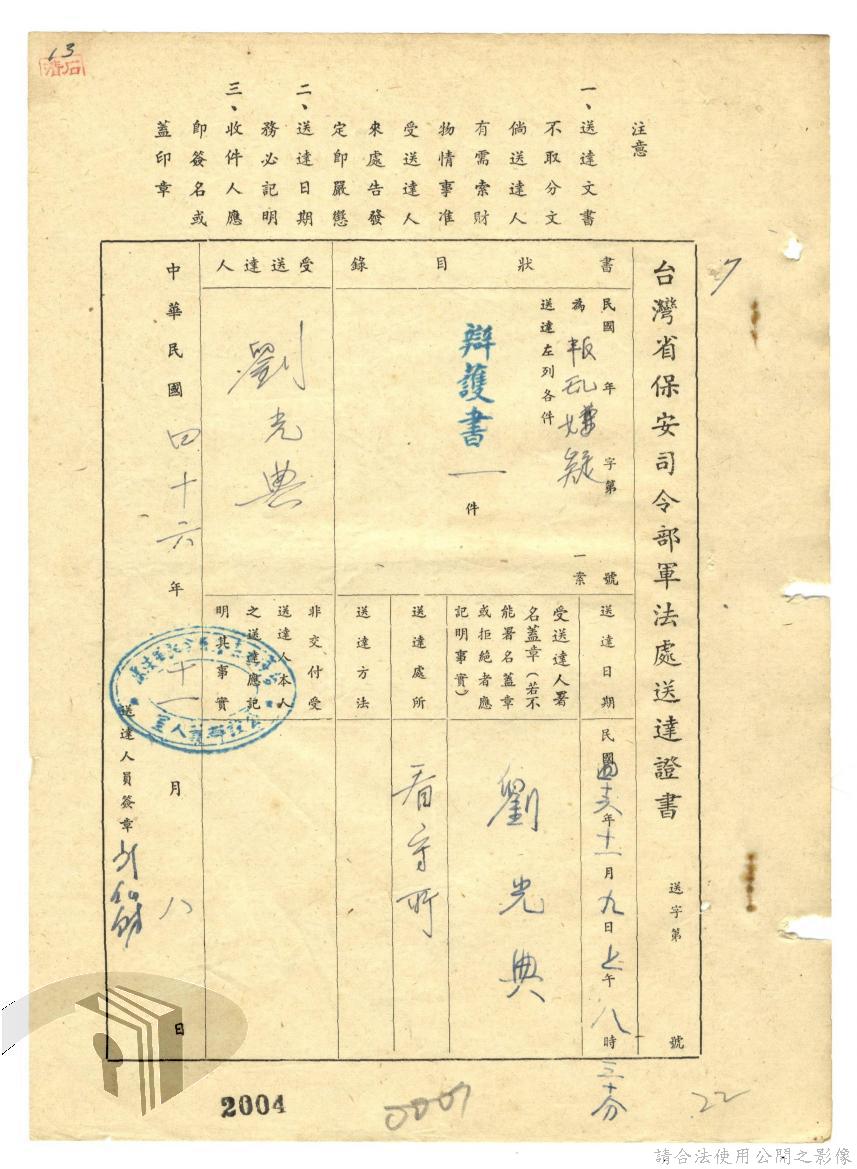 13
石濟
注意
一、送達文書
不取分文
倘送達人
有需索財
物情事准
受送達人
來處告發
定即嚴懲
二、送達日期
務必記明
三、收件人應
即簽名或
蓋印章
7
台灣省保安司令部軍法處送達證書
送字第　　號
書狀目錄
民國　年　字第　號
為叛亂嫌疑一案
送達左列各件
辯護書一件
受送達人
劉光典
送達日期
民國四十六年十一月九日上午八時三十分
受送達人署
名蓋章（若不
能署名蓋章
或拒絕者應
記明事實）
劉光典
送達處所
看守所
送達方法
非交付受
送達人本人
之送達應記
明其事實
中華民國四十六年十一月八日
送達人員簽章
2004
0007
22
請合法使用公開之影像